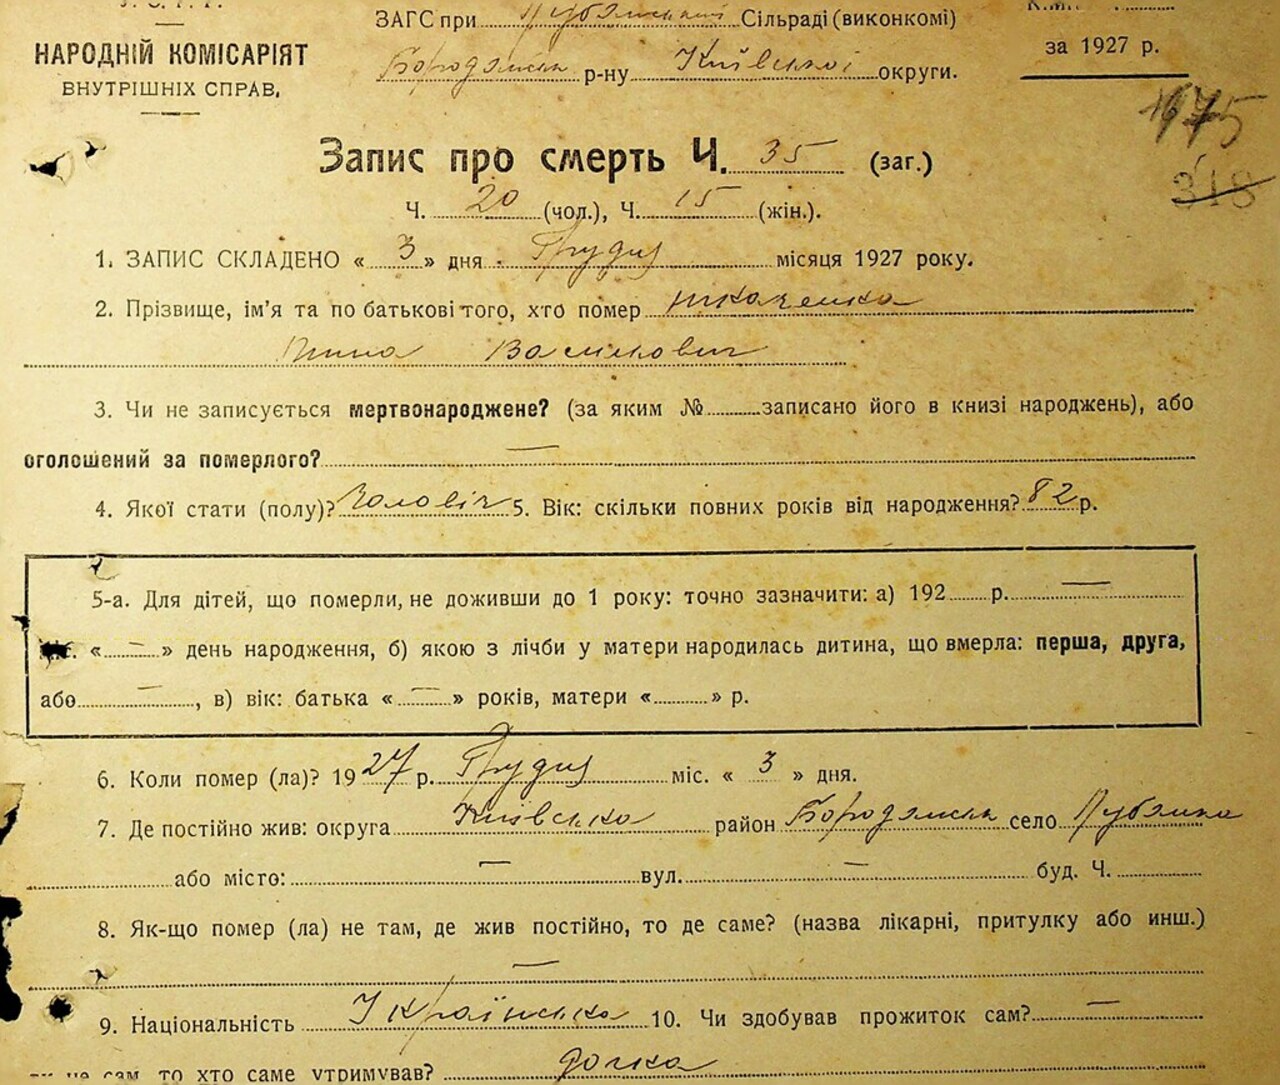 У. С. Р. Р.
НАРОДНІЙ КОМІСАРІЯТ
ВНУТРІШНІХ СПРАВ.
ЗАГС при Сільраді (виконкомі)
Бородянськ р-ну Київської округи.
за 1927 р.
Запис про смерть Ч. 35 (заг.)
Ч. 20 (чол.), Ч. 15 (жін.).
318
1. ЗАПИС СКЛАДЕНО « 3 » дня Грудня місяця 1927 року.
2. Прізвище, ім'я та по батькові того, хто помер
3. Чи не записується мертвонароджене? (за яким № записано його в книзі народжень), або
оголошений за померлого? —
4. Якої стати (полу)? Чоловіч 5. Вік: скільки повних років від народження? 82 р.
5-а. Для дітей, що померли, не доживши до 1 року: точно зазначити: а) 192 р. —
« — » день народження, б) якою з лічби у матери народилась дитина, що вмерла: перша, друга,
або —, в) вік: батька « — » років, матери « » р.
6. Коли помер (ла)? 1927 р. Грудня міс. « 3 » дня.
7. Де постійно жив: округа Київська район Бородянськ село
або місто: — вул. — буд. Ч.
8. Як-що помер (ла) не там, де жив постійно, то де саме? (назва лікарні, притулку або инш.)
—
9. Національність Українська 10. Чи здобував прожиток сам? —
не сам, то хто саме утримував? дочка